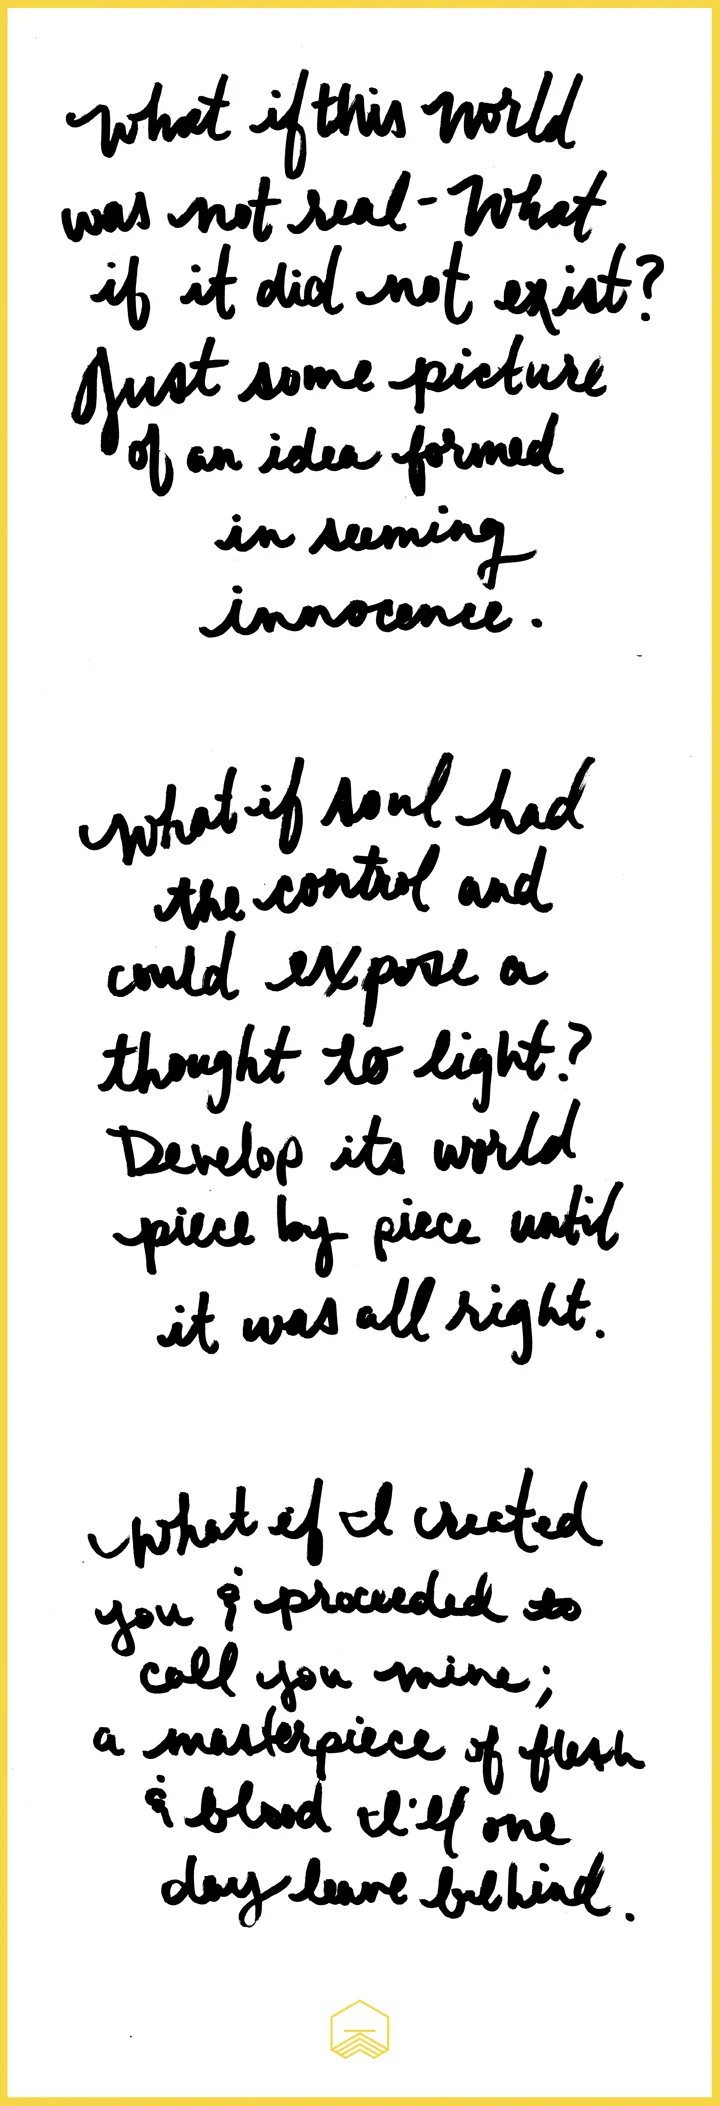 What if this world
was not real - What
if it did not exist?
Just some picture
of an idea formed
in seeming
innocence.
What if soul had
the control and
could expose a
thought to light?
Develop its world
piece by piece until
it was all right.
What if I created
you & proceeded to
call you mine;
a masterpiece of flesh
& blood I'll one
day leave behind.